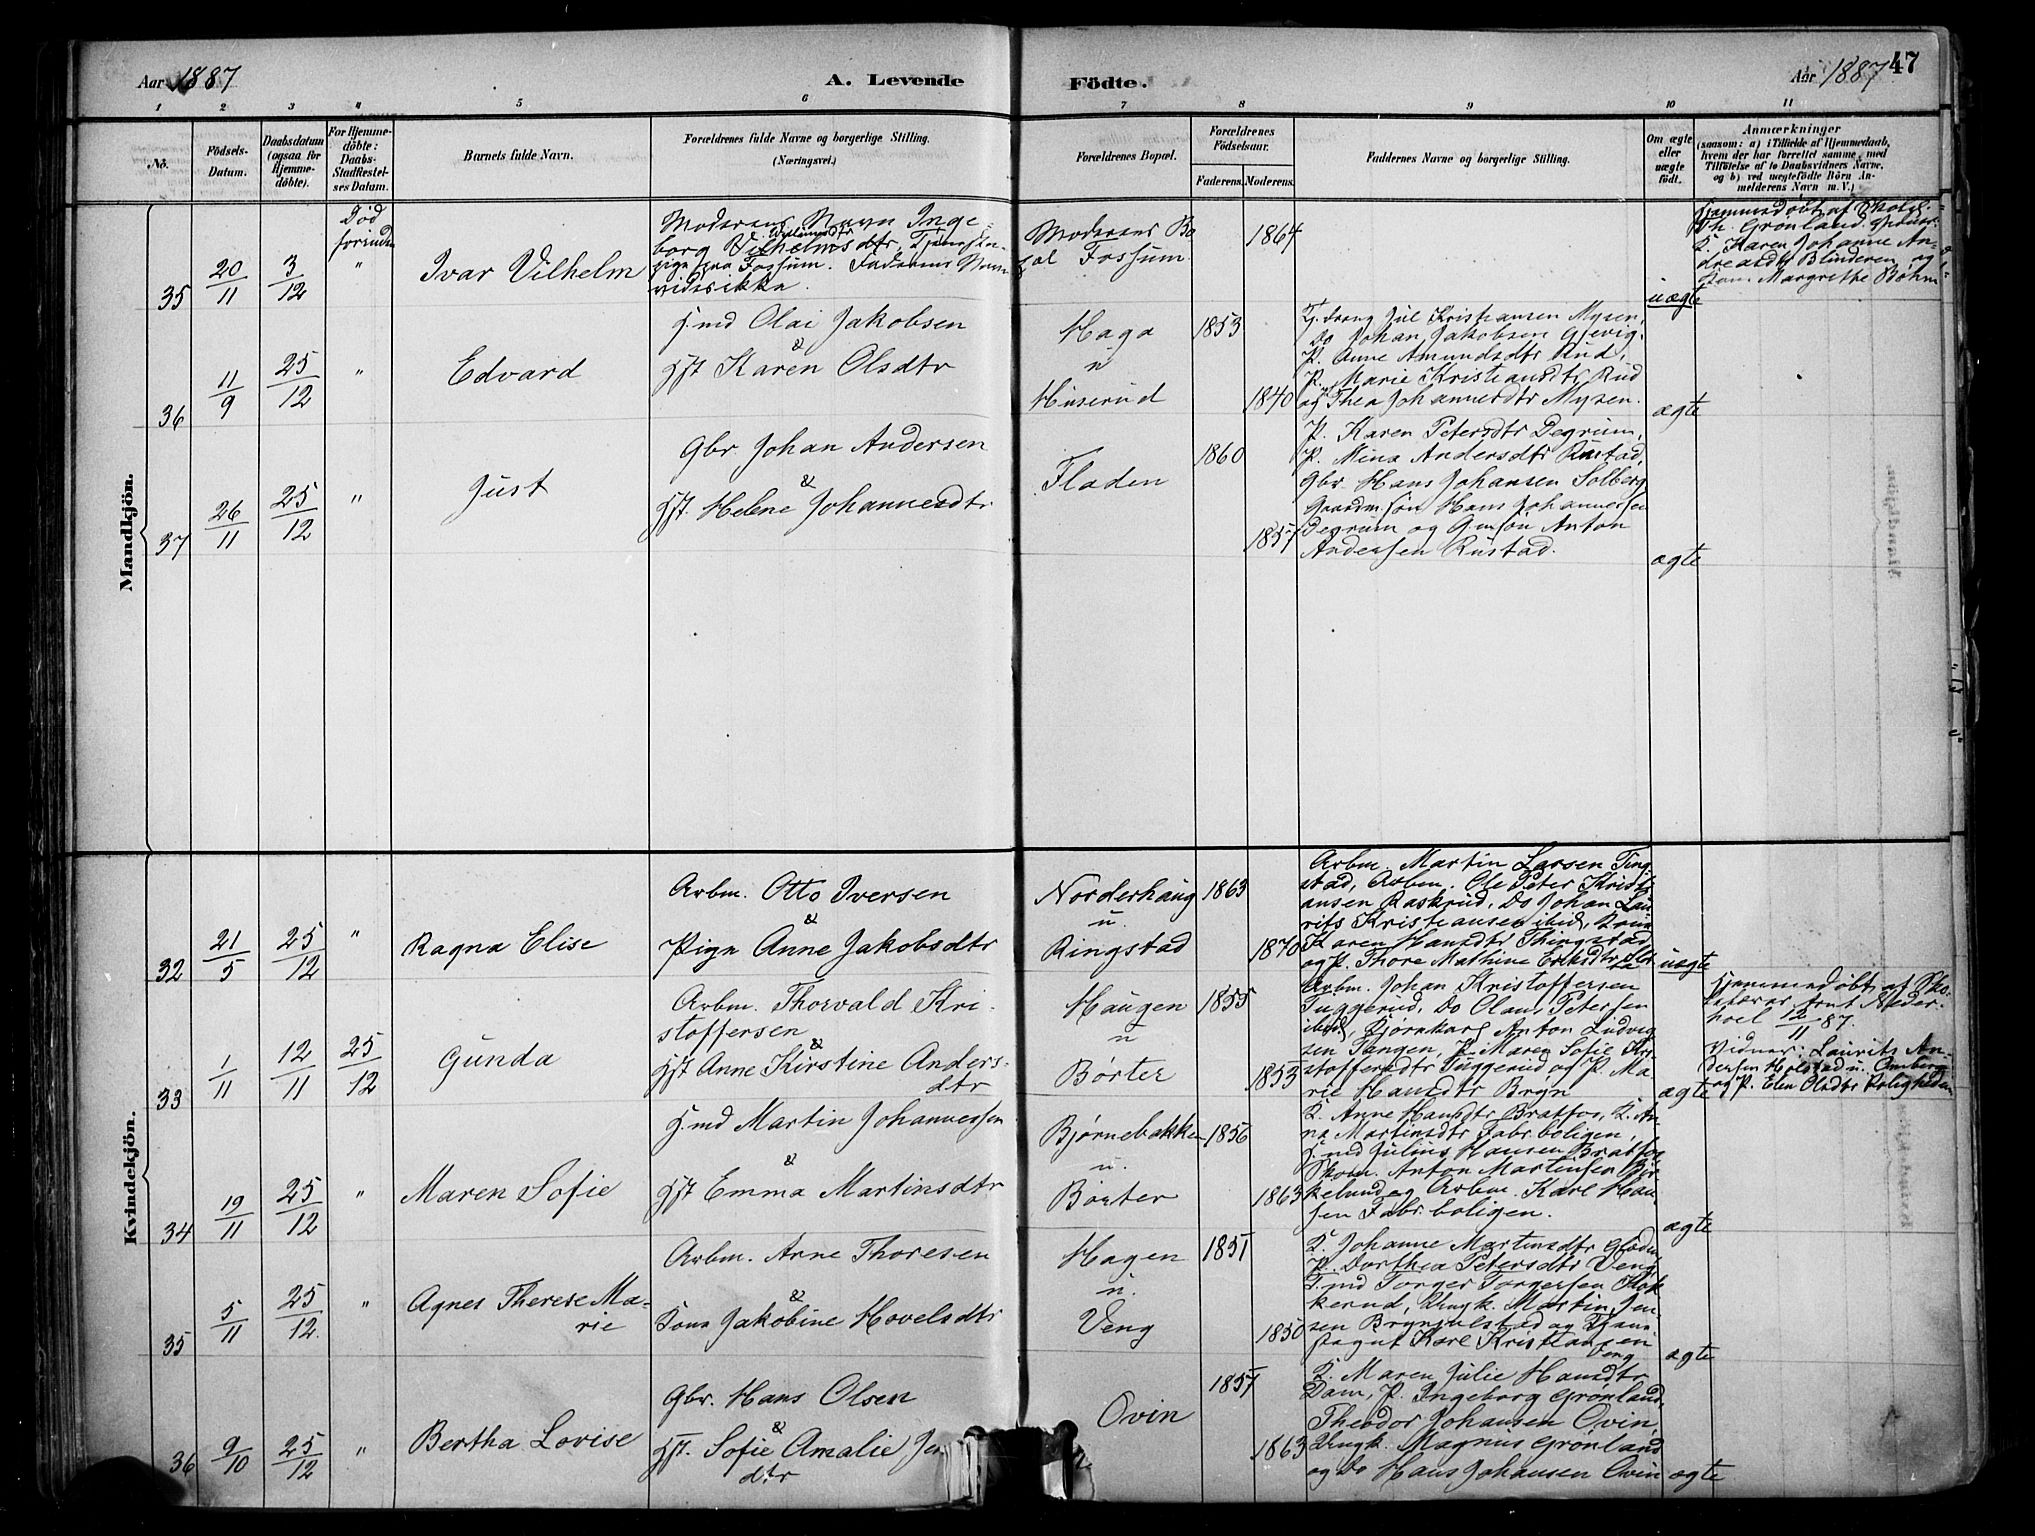 Aar 1887
A. Levende
Födte.
Aar 1887
47
1 2 3 " 5 6 7 8 9 10 11
No.
Födsels-
Datum.
Daabsdatum
(ogsaa for
Hjemme-
döbte).
For Hjemme-
döbte:
Daabs-
Stadfæstel-
ses Datum.
Barnets fulde Navn.
Forældrenes fulde Navne og borgerlige Stilling.
(Næringsvei.)
Forældrenes Bopæl.
Forældrenes
Födselsaar.
Faderens. Moderens.
Faddernes Navne og borgerlige Stilling.
Om ægte
eller
uægte
födt.
Anmærkninger
(saasom: a) i Tilfælde af Hjemmedaab,
hvem der har forrettet samme, med
Tilföielse af to Daabsvidners Navne,
og b) ved uægtefödte Börn An-
melderens Navn m. V.)
Mandkjön.
35
20/11
3/12
Död
forinden
"
Ivar Vilhelm
Moderens Navn Inge
borg Vilhelmsdtr, Tjeneste-
pige paa Fossum. Faderens Navn
vides ikke.
Moderens Bo
pæl Fossum.
1864
uægte
Hjemmedøbt af
Th. Grønland.
K. Karen Johanne An-
dreasdtr Blinderen og
Margrethe Bøhm
36
11/9
25/12
"
Edvard
H.md Olai Jakobsen
&
Hst Karen Olsdtr
Haga
u
Huserud
1853
1840
Jul Kristiansen Mysen,
Do Johan Jakobsen Gjevig,
P. Anne Amundsdtr Rud,
P. Marie Kristiansdtr Rud
og Thea Johannesdtr Mysen.
ægte
37
26/11
25/12
"
Just
Gbr Johan Andersen
&
Hst. Helene Johannesdtr
Fladen
1860
1857
P. Karen Petersdtr Degrum,
P. Mina Andersdtr Rustad,
Gbr. Hans Johansen Solberg
Gaardm.søn Hans Johannessen
Degrum og Gmsøn Anton
Andersen Rustad.
ægte
Kvindekjön.
32
21/5
25/12
"
Ragna Elise
Arbm. Otto Iversen
&
Pige Anne Jakobsdtr
Norderhaug
u.
Ringstad
1863
1870
Arbm. Martin Larsen Ting
stad, Arbm. Ole Peter Kristi
ansen Raskrud, Do Johan Lau
rits Kristiansen ibid,
Karen Hansdtr Thingstad
og P. Thore Mathine Eriksdtr
uægte
33
1/11
12/11
25/12
Gunda
Arbm. Thorvald Kri-
stoffersen
&
Hst Anne Kirstine Anders-
dtr
Haugen
u
Børter
1855
1853
Arbm. Johan Kristoffersen
Tuggerud, Do Olaus Petersen
ibid, Anton Ludvig
sen Tangen, P. Maren Sofie Kri-
stoffersdtr Tuggerud og P. Ma
rie Hansdtr Bryn
ægte
Hjemmedøbt af Sko-
lelærer Arnt Meder-
hoel 12/11 87.
Vidner: Laurits An-
dersen Holstad u.
og P. Elen Olsdtr Roligheden
34
19/11
25/12
"
Maren Sofie
H.md Martin Johannessen
&
Hst Emma Martinsdtr
Bjørnebakken
u.
Børter
1856
1863
K. Anne Hansdtr Bratfos, K. An
na Martinsdtr Fabr.boligen,
H.md Julius Hansen Bratfos
Skom. Anton Martinsen Bir
kelund og Arbm. Karl Han
sen Fabr.boligen.
ægte
35
5/11
25/12.
"
Agnes Therese Ma-
rie
Arbm. Arne Thoresen
&
Kone Jakobine Hovelsdtr
Hagen
u.
Veng
1851
1850
K. Johanne Martinsdtr
P. Dorthea Petersdtr Veng,
H.md Torger Torgersen Kok
kerud, Ungk. Martin Jen
sen Brynjulstad og
Karl Kristiansen
Veng
ægte
36
9/10
25/12
"
Bertha Lovise
Gbr. Hans Olsen
&
Hst. Sofie Amalie Jen
dtr
Ovin
1857
1863
K. Maren Julie Hansdtr
Dam, P. Ingeborg Grønland
Theodor Johansen Ovin,
Ungk. Magnus Grønland
og Do Hans Johansen Ovin
ægte